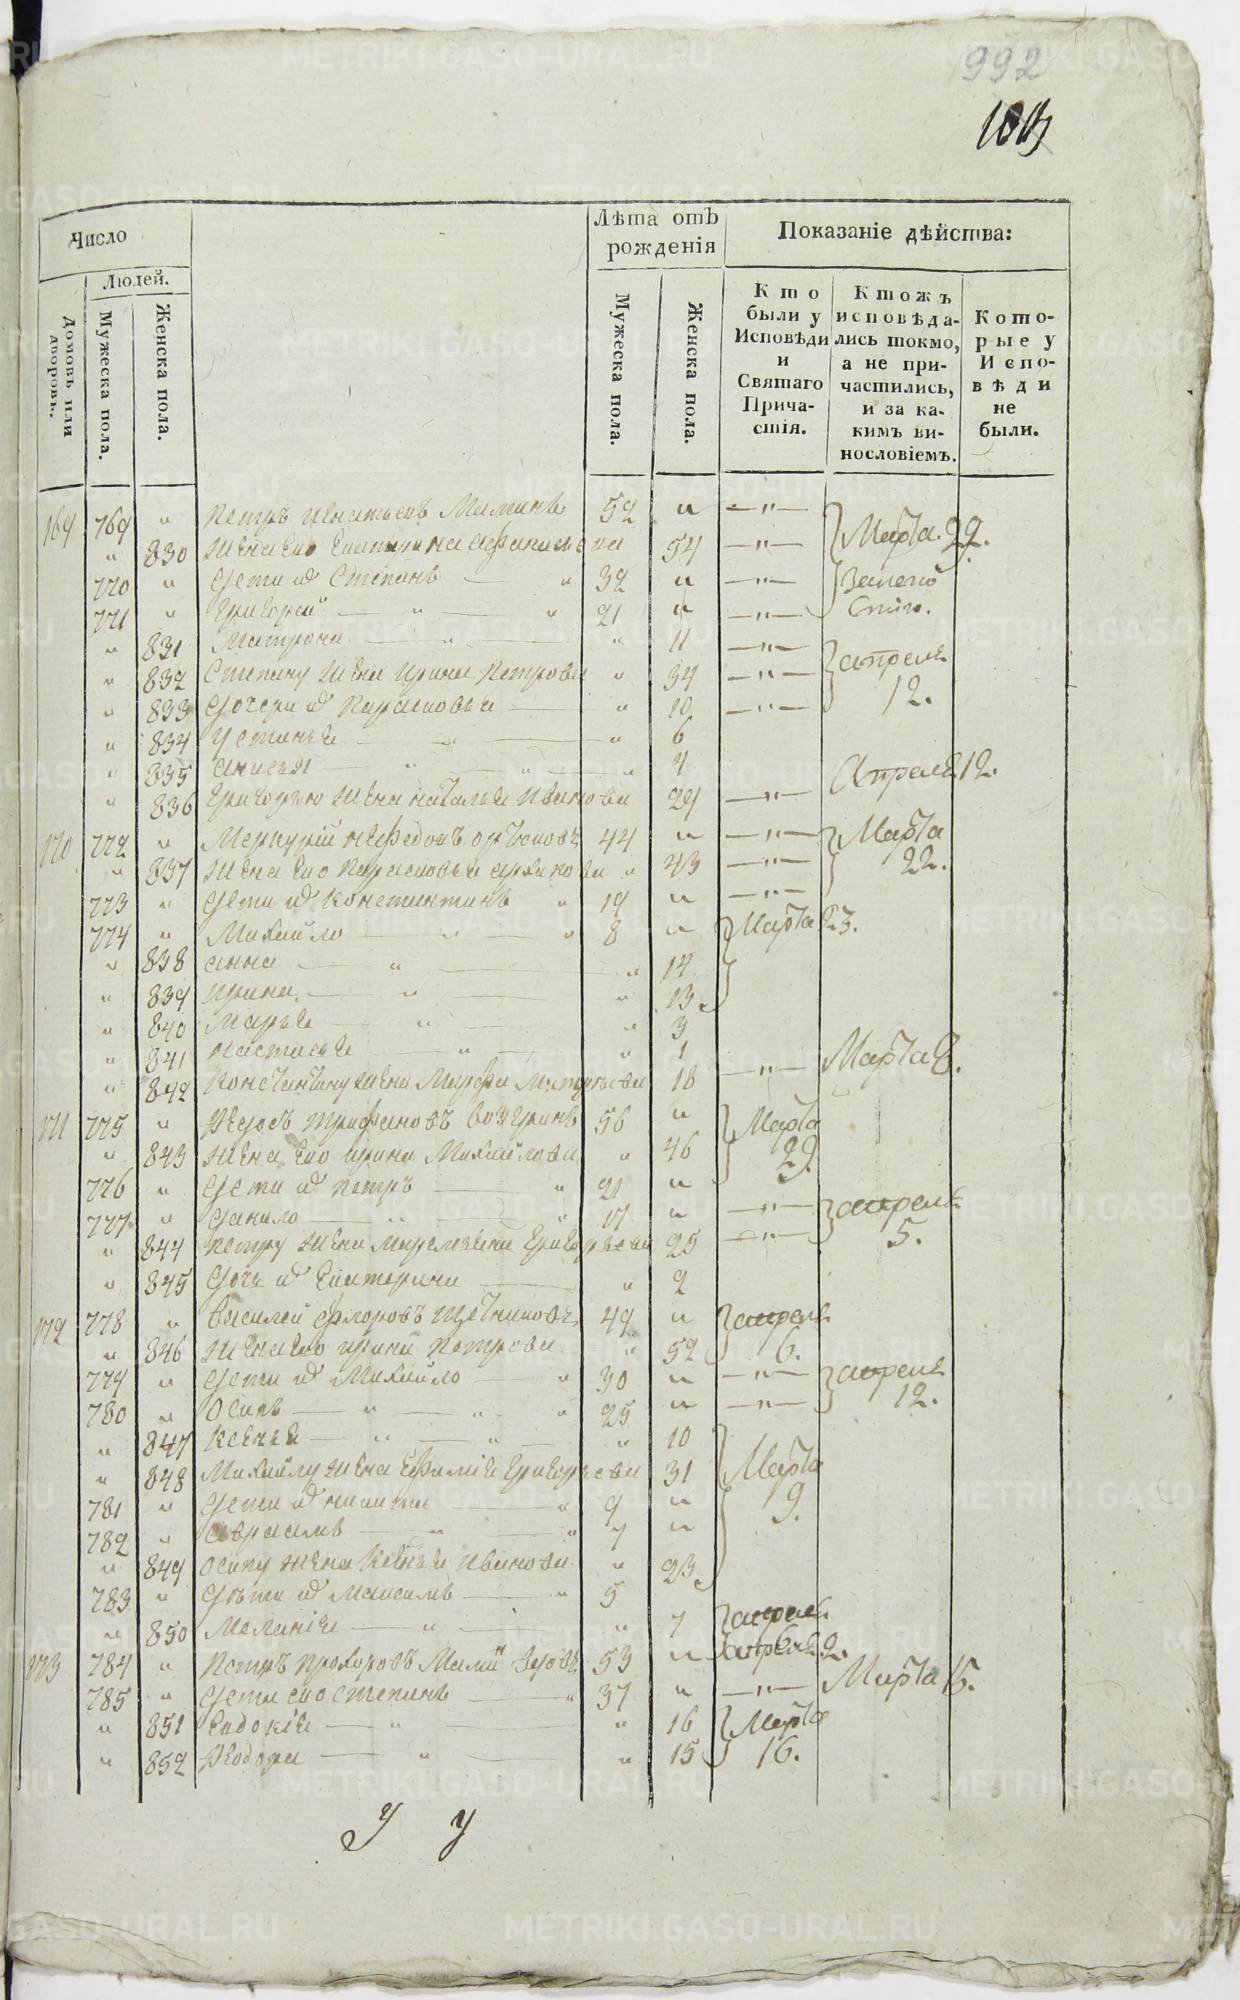 992
Число
Людей.
Домовъ или дворовъ.
Мужеска пола.
Женска пола.
Лѣта отъ рожденія
Мужеска пола.
Женска пола.
Показаніе дѣйства:
Кто были у Исповѣди и Святаго Причастія.
Ктожъ исповѣдались токмо, а не причастились, и за какимъ винословіемъ.
Которые у Исповѣди не были.
169 769 " Петръ Игнатьевъ Маминъ 52 " — " — Марта 22.
" 830 жена его Екатерина Афанасьева 54 — " —
770 " Дети их Степанъ — " 32 " — " —
771 " Григорей — " — " 21 " — " —
" 831 Матрона — " — " 11 — " — апреля
" 832 Степану жена Ирина Петрова " 34 — " — 12.
" 833 Дочери их Парасковья — " 10 — " —
" 834 Устинья — " — " 6
" 835 Анисья — " — " — " 4
" 836 Григорью жена Наталья Иванова 24 — " — Апреля 12.
170 772 " Меркурій Нефедовъ 44 " — " — Марта
" 837 жена его Парасковья " 43 — " — 22.
773 " Дети их Константинъ " 19 " — " —
774 " Михайло — " — " 8 " Марта 23.
" 838 Анна — " — " 14
" 839 Ирина — " — " 13
" 840 Марья — " — " 3
" 841 Настасья — " — " 1
" 842 Константину жена Марфа 18 — " — Марта 8.
171 775 " Трифановъ 56 " Марта
" 843 жена его Ирина Михайлова " 46 29.
776 " Дети их Петръ — " 21 " — " — апреля
777 " Данило — " — " 17 " — " — 5.
" 844 Петру жена Григорьева 25
" 845 Дочь их Екатерина — " 2
172 778 " Василей Флоровъ 49 " апреля
" 846 жена его Ирина Петрова " 52 6.
779 " Дети их Михайло — " 30 " — " — апреля
780 " Осипъ — " — " — " 25 " — " — 12.
" 847 Ксенья — " — " — " 10
" 848 Михайлу жена Ефимія Григорьева 31 Марта
781 " Дети их Никита — " 9 " 9.
782 " Авраамъ — " — " 7 "
" 849 Осипу жена Ксенья Иванова " 23
783 " Дѣти их Максимъ — " 5
" 850 Меланія — " — " 7 апреля
173 784 " Петръ Прохоровъ 53 " апреля 2.
785 " Дети его Степанъ — " 37 " — " — Марта 15.
" 851 Евдокія — " — " 16 Марта
" 852 Ѳедора — " — " 15 16.